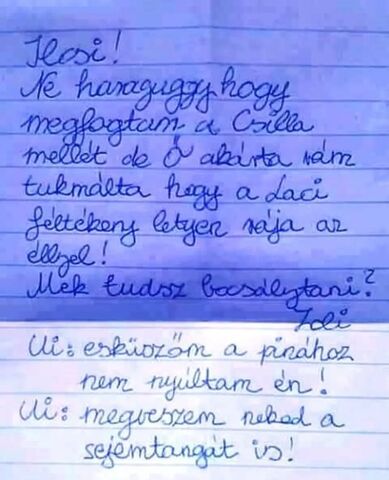 Ilcsi!
Ne haraguggy hogy
megfogtam a Csilla
mellét de Ő akárta rám
tukmálta hogy a Laci
féltékeny letyen rája az
éllyel!
Mek tudsz bocsálytani?
Zoli
Ui: esküszöm a pinához
nem nyúltam én!
Ui: megveszem neked a
sejemtangát is!